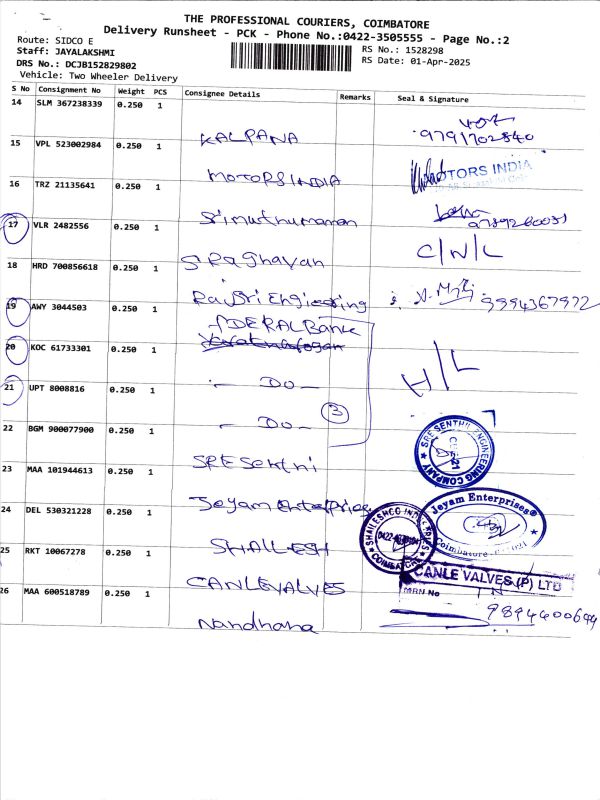 THE PROFESSIONAL COURIERS, COIMBATORE
Delivery Runsheet - PCK - Phone No.:0422-3505555 - Page No.:2
Route: SIDCO E
Staff: JAYALAKSHMI
DRS No.: DCJB152829802
Vehicle: Two Wheeler Delivery
RS No.: 1528298
RS Date: 01-Apr-2025
S No Consignment No Weight PCS Consignee Details Remarks Seal & Signature
14 SLM 367238339 0.250 1
KALPANA 9791702840
15 VPL 523002984 0.250 1
MOTORS INDIA TORS INDIA
16 TRZ 21135641 0.250 1
Srimuthumanan
17 VLR 2482556 0.250 1
S Raghavan C/N/L
18 HRD 700856618 0.250 1
Rajsri Engieering 9994367972
19 AWY 3044503 0.250 1
FDERAL Bank
20 KOC 61733301 0.250 1
- Do - H/L
21 UPT 8008816 0.250 1
3
- Do -
22 BGM 900077900 0.250 1
SRE Senthi SRE SENTHIL ENGINEERING COMPANY
23 MAA 101944613 0.250 1
Jeyam Enterprices Jeyam Enterprises Coimbatore
24 DEL 530321228 0.250 1
SHAILESH COIMBATORE
25 RKT 10067278 0.250 1
CANLEVALVES CANLE VALVES (P) LTD
MRN No
26 MAA 600518789 0.250 1
Nandhana 9894400644